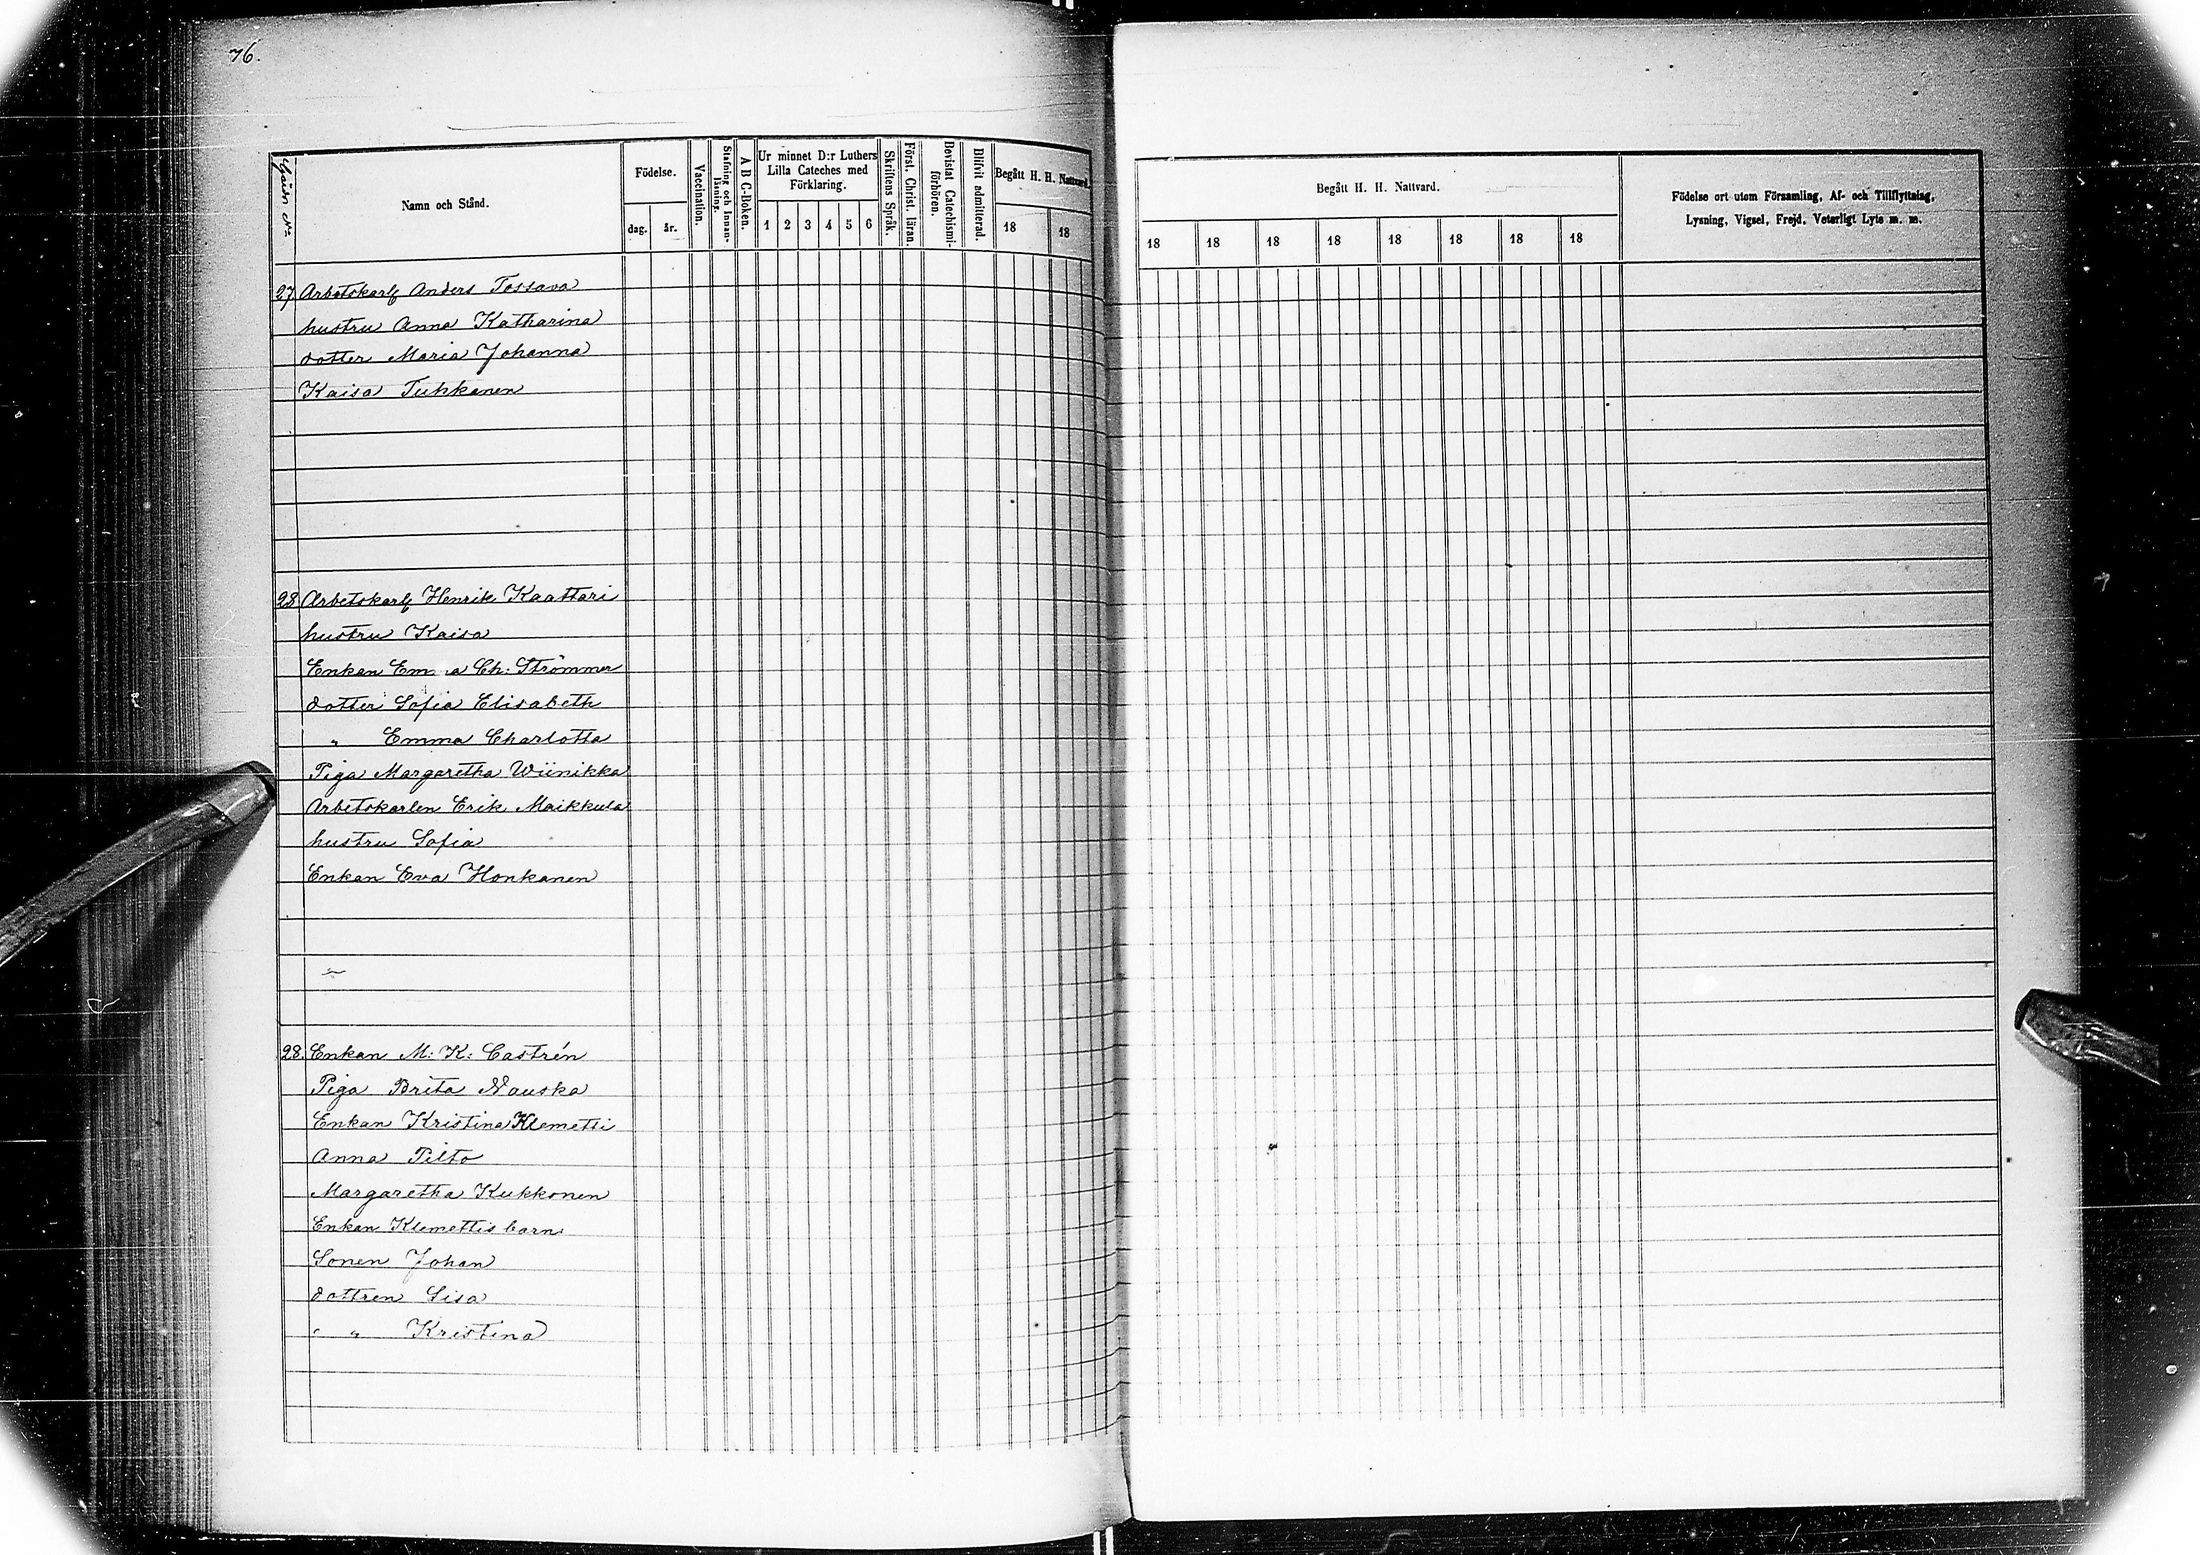 76.
Gårds No
Namn och Stånd.
Födelse.
dag. år.
Vaccination.
Stafning och Innanläsning.
A B C-Boken.
Ur minnet D:r Luthers
Lilla Cateches med
Förklaring.
1 2 3 4 5 6
Skriftens Språk.
Först. Christ. läran.
Bevistat Catechismi-förhören.
Blifvit admitterad.
Begått H. H. Nattvard.
18 18
27 Arbetskarl Anders Tossava
hustru Anna Katharina
dotter Maria Johanna
Kaisa Tukkanen
28 Arbetskarl Henrik Kaattari
hustru Kaisa
Enkan Em a Ch: Strömmer
dotter Sofia Elisabeth
" Emma Charlotta
Piga Margaretha Wiinikka
Arbetskarlen Erik Maikkula
hustru Sofia
Enkan Eva Honkanen
28. Enkan M: K: Castrén
Piga Brita Nauska
Enkan Kristina Klemetti
Anna Pilto
Margaretha Kukkonen
Enkan Klemettis barn
Sonen Johan
dottren Lisa
" " Kristina
Begått H. H. Nattvard.
18 18 18 18 18 18 18 18
Födelse ort utom Församling, Af- och Tillflyttning,
Lysning, Vigsel, Frejd. Veterligt Lyte m. m.